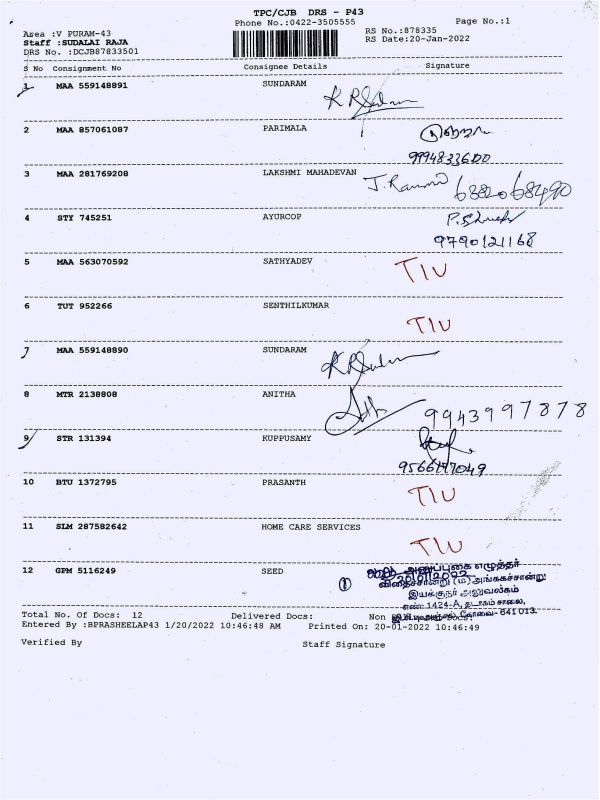 TPC/CJB DRS - P43
Phone No.:0422-3505555 Page No.:1
Area :V PURAM-43
Staff :SUDALAI RAJA RS No.:878335
DRS No. :DCJB87833501 RS Date:20-Jan-2022
S No Consignment No Consignee Details Signature
1 MAA 559148891 SUNDARAM
2 MAA 857061087 PARIMALA
9994833600
3 MAA 281769208 LAKSHMI MAHADEVAN 6382068490
4 STY 745251 AYURCOP
9790121168
5 MAA 563070592 SATHYADEV TIU
6 TUT 952266 SENTHILKUMAR TIU
7 MAA 559148890 SUNDARAM
8 MTR 2138808 ANITHA 9943997878
9 STR 131394 KUPPUSAMY
10 BTU 1372795 PRASANTH TIU
11 SLM 287582642 HOME CARE SERVICES TIU
12 GPM 5116249 SEED
20/01/2022
விதைச்சான்று (ம) அங்ககச்சான்று
இயக்குநர் அலுவலகம்
எண்: 1424-A, தடாகம் சாலை,
கோவை- 641 013.
Total No. Of Docs: 12 Delivered Docs: Non
Entered By :BPRASHEELAP43 1/20/2022 10:46:48 AM Printed On: 20-01-2022 10:46:49
Verified By Staff Signature